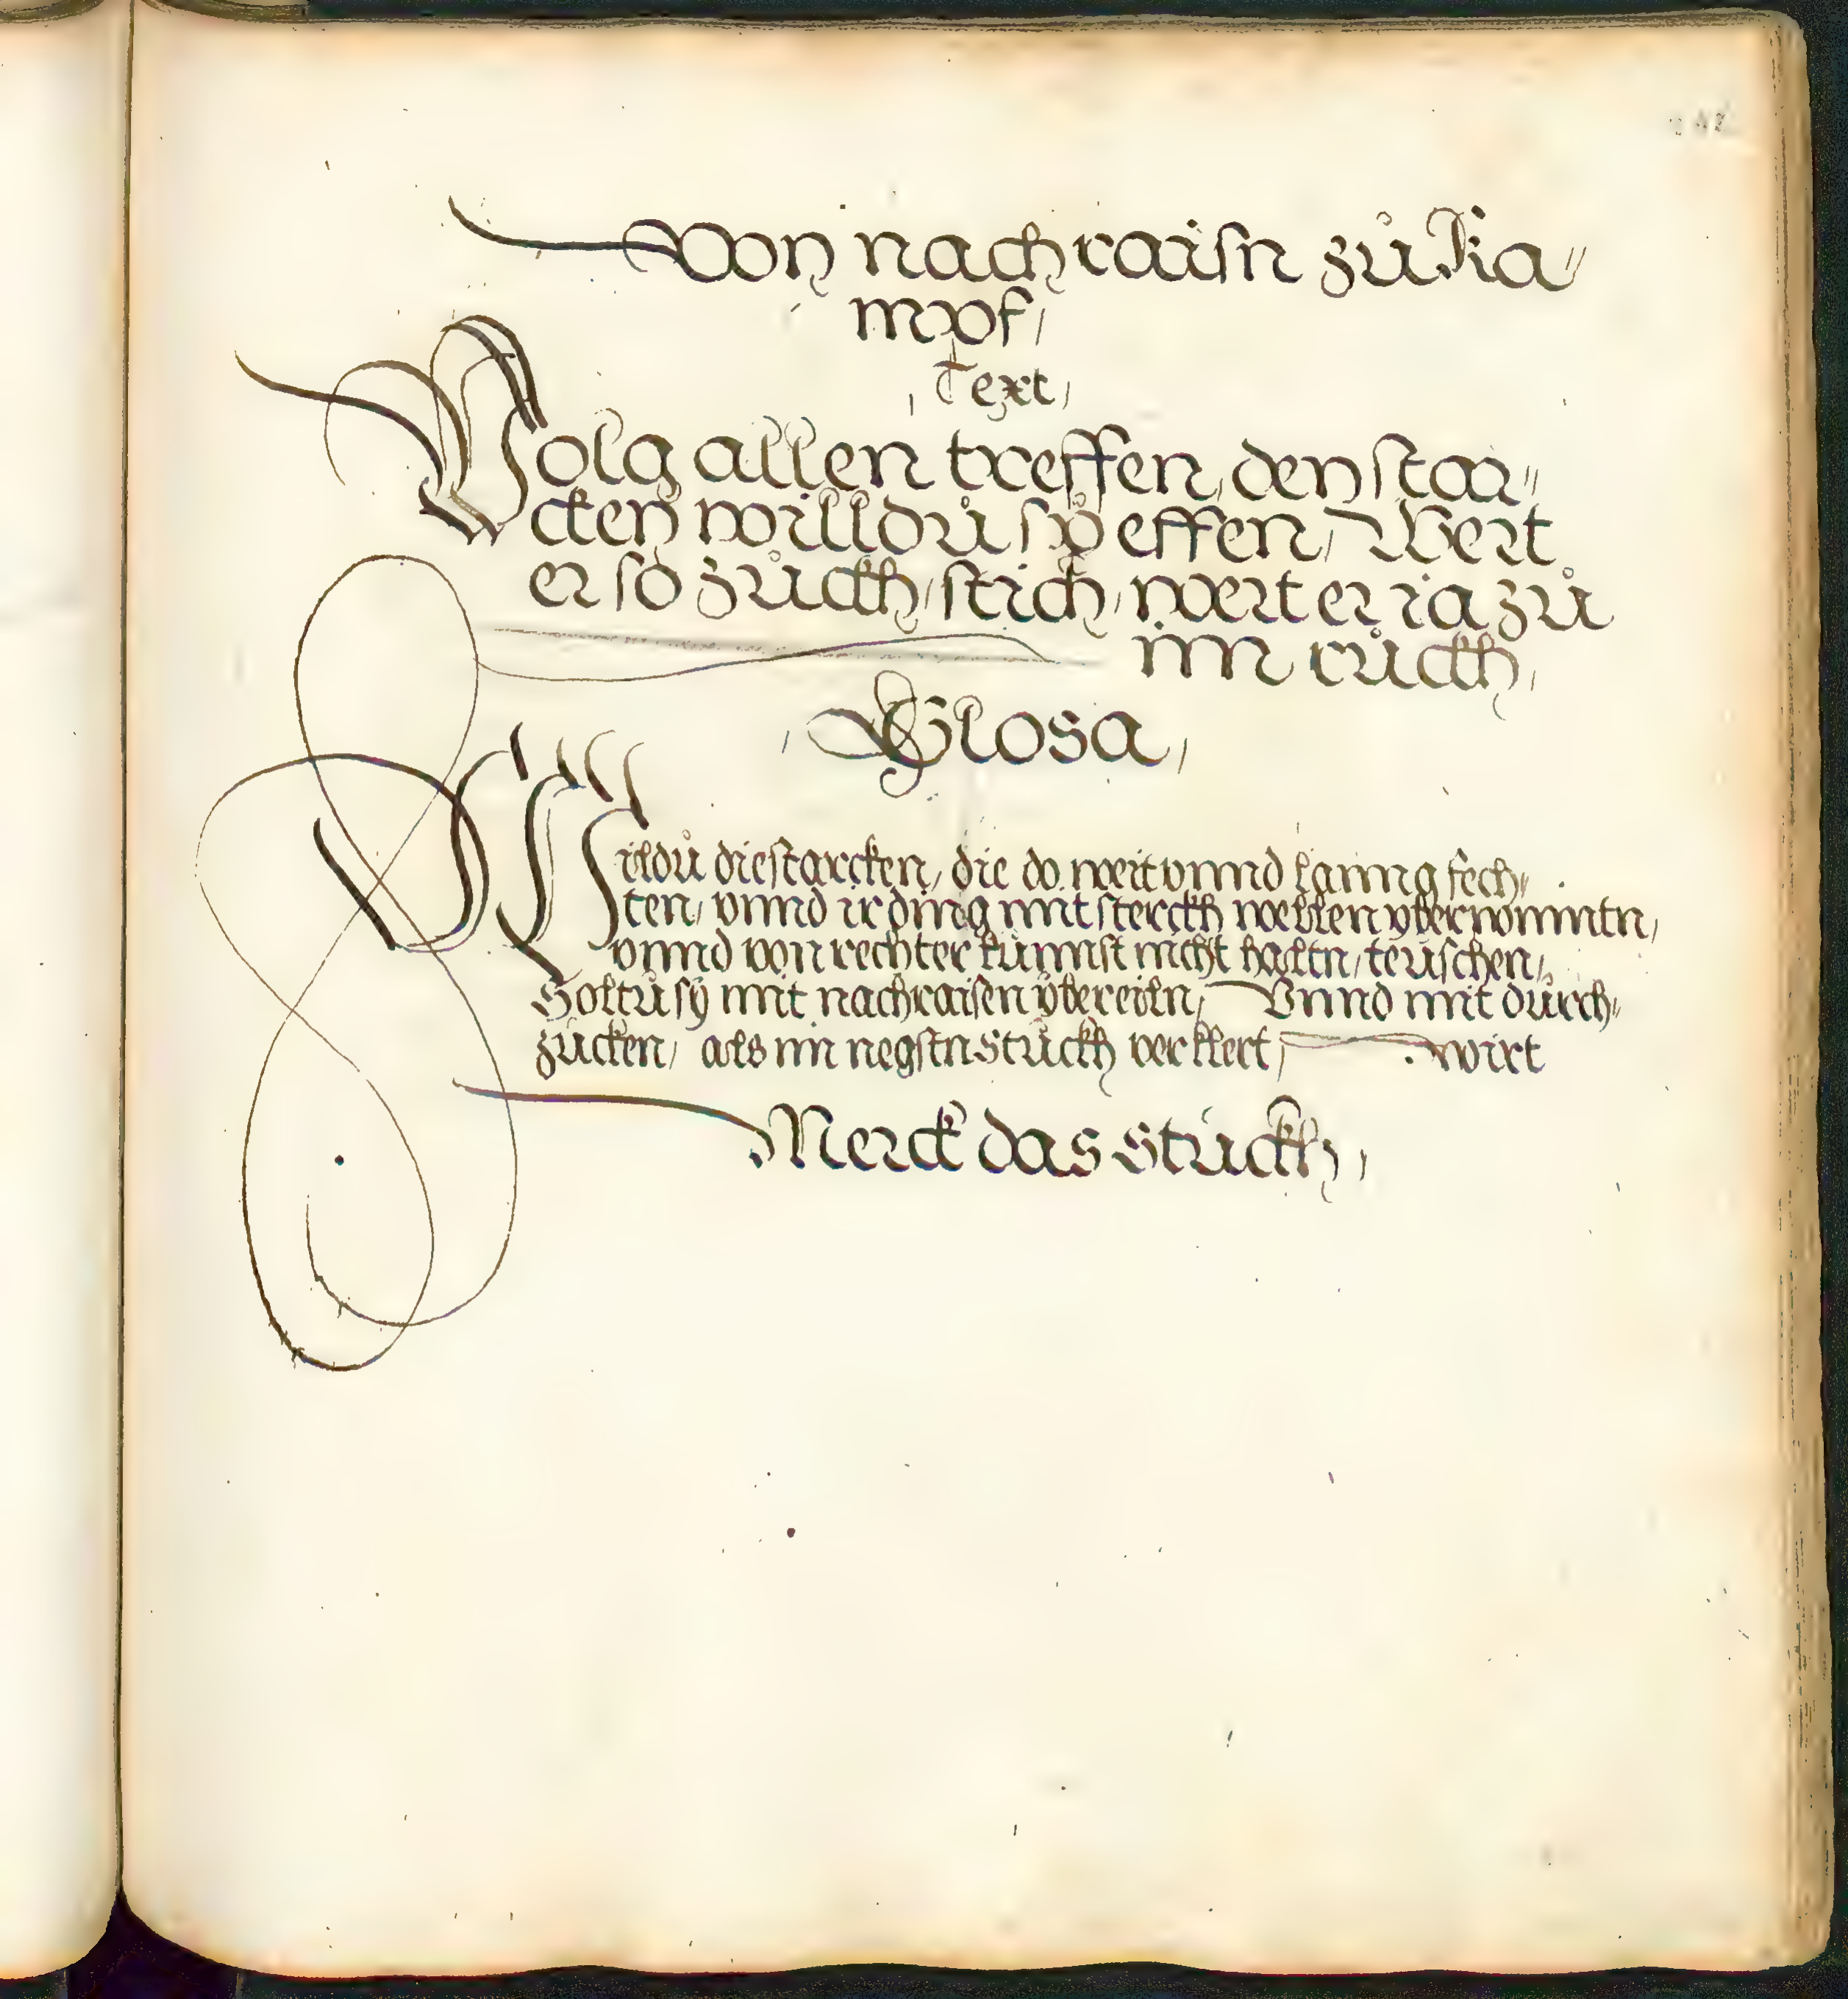 Von nach raisn zů Ka〃
mpf /
/ Text /
Volg allen treffen, den star〃
cken willdů sy̆ effen / Wert
er so zůckh / stich / wert er ia zů
im růckh /
/ Glosa /
Wildů die starcken, die do weit vnnd lanng fech〃
ten / vnnd ir ding mit sterckh wellen
vnnd von rechter kůnnst nicht haltn / teůschen /
Soltů sy̆ mit nachraisen ÿbereiln / Vnnd mit důrch〃
zůcken / als im negstn stůckh verklert / wirt
Merck das stůckh /